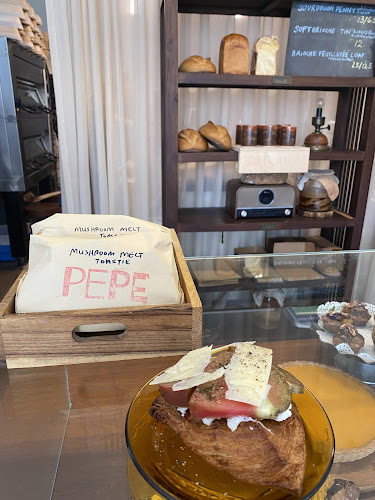 SOURDOUGH PENNY
13/65
SOFT BRIOCHE TIN
12
BRIOCHE FEUILLETÉE LOAF
25/125
MUSHROOM MELT
TOASTIE
MUSHROOM MELT
TOASTIE
PEPE